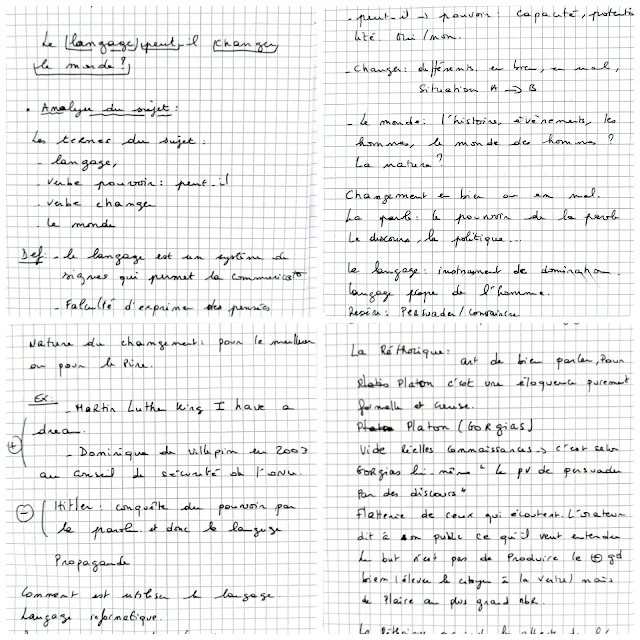 Le langage peut-il changer
le monde?
• Analyse du sujet:
Les termes du sujet:
- langage,
- verbe pouvoir: peut-il
- verbe changer
- le monde
Def: - le langage est un système de
signes qui permet la communicato
- Faculté d'exprimer des pensées
- peut-il → pouvoir: capacité, potenti
lité. Oui/non.
- Changer: différents. en bien, en mal,
Situation A → B
- Le monde: l'histoire, évènements, les
hommes, le monde des hommes?
La nature?
Changement en bien ou en mal.
La parole: le pouvoir de la parole
Le discours, la politique...
Le langage: instrument de domination.
langage propre de l'homme.
Repère: Persuader/Convaincre
Nature du changement: pour le meilleur
ou pour le Pire.
EX:
- MaRtin Luthe King I have a
dream.
- Dominique de Villepin en 2003
au Conseil de sécurité de l'ONU.
+
- Hitler: conquête du pouvoir par
la parole et donc le langage
Propagande
Comment est utiliser le langage
Langage reformatique.
La Réthorique: art de bien parler, Pour
Platon Platon c'est une éloquence purement
formelle et creuse.
Platon Platon (GORgias)
Vide Réelles Connaissances → c'est selon
GORgias lui-même "le pv de persuader
Par des discours"
Flatterie de ceux qui écoutent. L'orateur
dit à son public ce qu'il veut entendre
Le but n'est pas de Produire le + gd
bien (élever le citoyen à la vertu) mais
de Plaire au plus grand nbR.